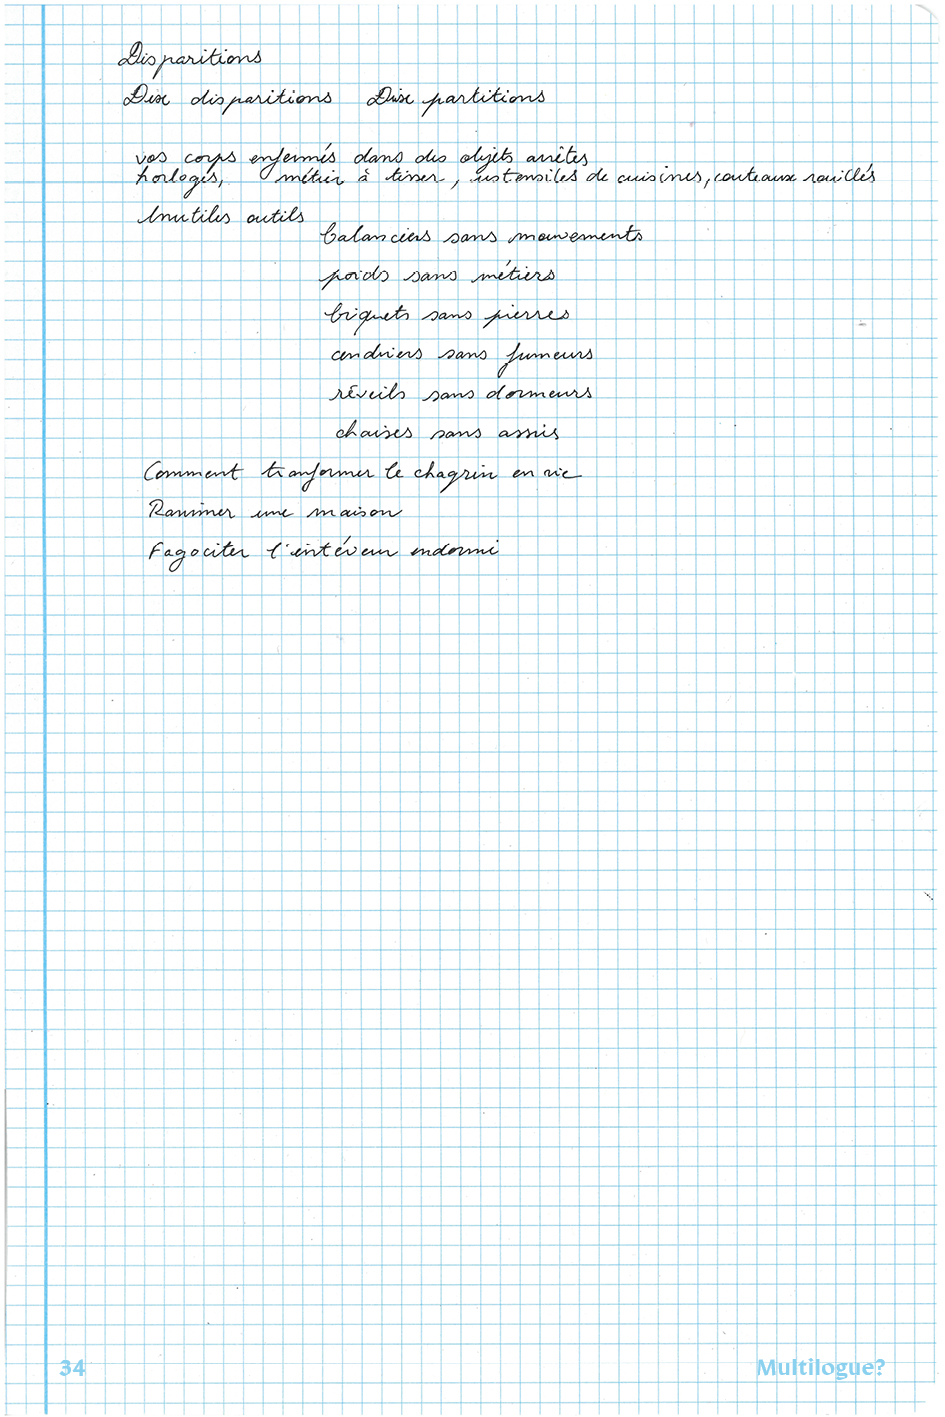 Disparitions
Dix disparitions Dix partitions
vos corps enfermés dans des objets arrêtés
horloges, métier à tisser, ustensiles de cuisines, couteaux rouillés
Inutiles outils
balanciers sans mouvements
poids sans métiers
briquets sans pierres
cendriers sans fumeurs
réveils sans dormeurs
chaises sans assis
Comment tranformer le chagrin en vie
Ranimer une maison
Fagociter l'intérieur endormi
34
Multilogue?